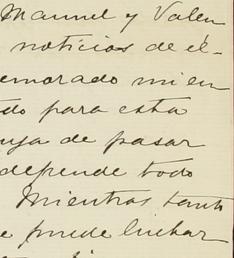 Manuel y Valen
noticias de él-
emorado mien
do para esta
uja de pasar
depende todo
Mientras tanto
e puede luchar